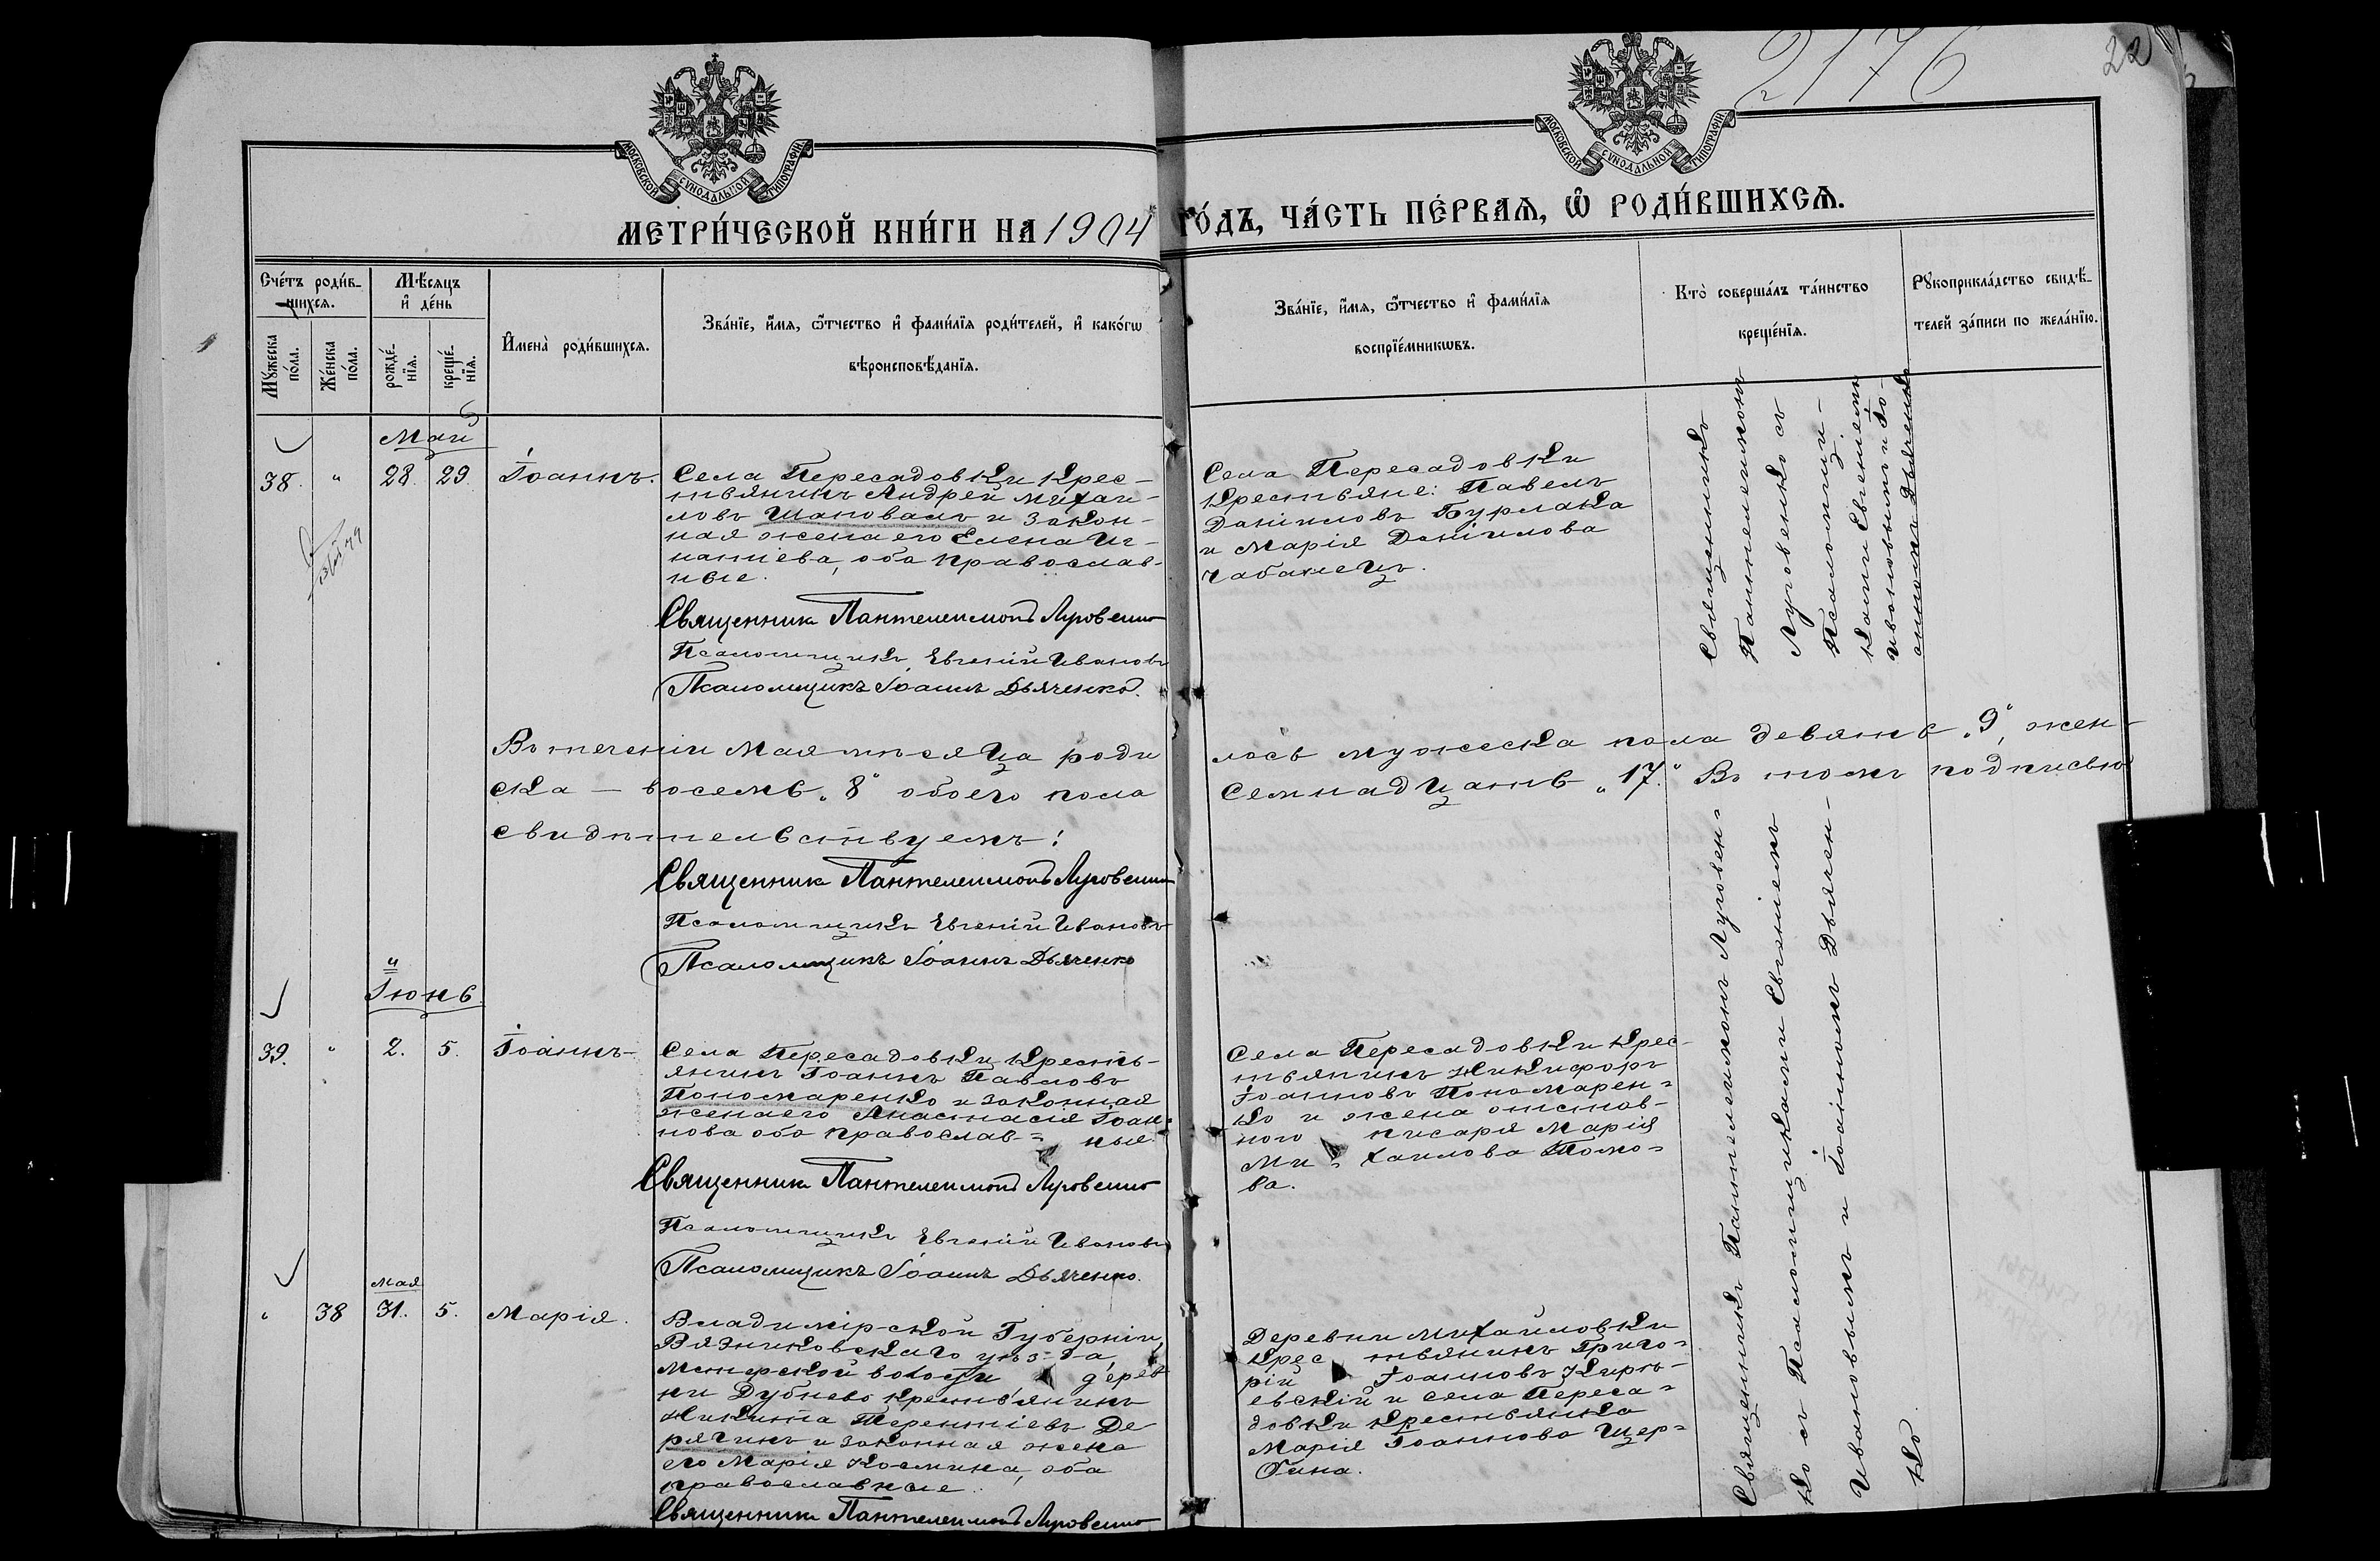 2176
22
МОСКОВСКОЙ СѴНОДАЛЬНОЙ ТИПОГРАФІИ
МОСКОВСКОЙ СѴНОДАЛЬНОЙ ТИПОГРАФІИ
МЕТРИ́ЧЕСКОЙ КНИ́ГИ НА 1904 ГО́ДЪ, ЧА́СТЬ ПЕ́РВАѦ, Ѡ҆ РОДИ́ВШИХСѦ.
Сче́тъ роди́в-
шихсѧ.
Мѣ́сѧцъ
и҆ де́нь
Мꙋ́жеска
по́ла.
Же́нска
по́ла.
рожде́-
нїѧ.
креще́-
нїѧ.
И҆мена̀ роди́вшихсѧ.
Зва́нїе, и҆́мѧ, ѻ҆́тчество и҆ фами́лїѧ роди́телей, и҆ како́гѡ
вѣроисповѣ́данїѧ.
Зва́нїе, и҆́мѧ, ѻ҆́тчество и҆ фами́лїѧ
воспрїе́мникѡвъ.
Кто̀ соверша́лъ та́инство
креще́нїѧ.
Рꙋкоприкла́дство свидѣ́-
телей за́писи по жела́нїю.
Май
38. " 28. 29 Іоаннъ.
Села Пересадовки крес-
тьянинъ Андрей Михаи-
ловъ Шаповалъ и закон-
ная жена его Елена Иг-
натіева, оба православ-
ные.
Священникъ Пантелеимонъ Луговенко
Псаломщикъ Евгеній Ивановъ
Псаломщикъ Іоаннъ Дьяченко.
Села Пересадовки
крестьяне: Павелъ
Даніиловъ Бурлака
и Марія Даніилова
Чабанецъ.
Священникъ
Пантелеимонъ
Луговенко съ
Псаломщи-
ками Евгеніемъ
Ивановымъ и Іо-
анномъ Дьяченко
Въ теченіи Мая мѣсяца роди
лось мужеска пола девять „9", жен-
ска — восемь „8" обоего пола
семнадцать „17." Въ томъ подписью
свидѣтельствуемъ:
Священникъ Пантелеимонъ Луговенко
Псаломщикъ Евгеній Ивановъ
Псаломщикъ Іоаннъ Дьяченко
Іюнь
39. " 2. 5. Іоаннъ
Села Пересадовки кресть-
янинъ Іоаннъ Павловъ
Пономаренко и законная
жена его Анастасія Іоан-
нова оба православ= ныя.
Священникъ Пантелеимонъ Луговенко
Псаломщикъ Евгеній Ивановъ
Псаломщикъ Іоаннъ Дьяченко.
Села Пересадовки крес-
тьянинъ Никифоръ
Іоанновъ Пономарен=
ко и жена отстав-
ного писаря Марія
Ми= хаилова
ва.
мая
" 38 31. 5. Марія.
Владимірской Губерніи,
Вязниковскаго уѣзда,
Мстерской волости дерев
ни Дубнево крестьянинъ
Никита Терентіевъ Де
рягинъ и законная жена
его Марія Космина, оба
православные.
Священникъ Пантелеимонъ Луговенко
Деревни Михайловки
крес тьянинъ Григо=
рій Іоанновъ Кирѣ-
евскій и села Переса=
довки крестьянка
Марія Іоаннова Щер=
бина.
Священникъ Пантелеимонъ Луговен=
ко съ Псаломщиками Евгеніемъ
Ивановымъ и Іоанномъ Дьячен-
ко.